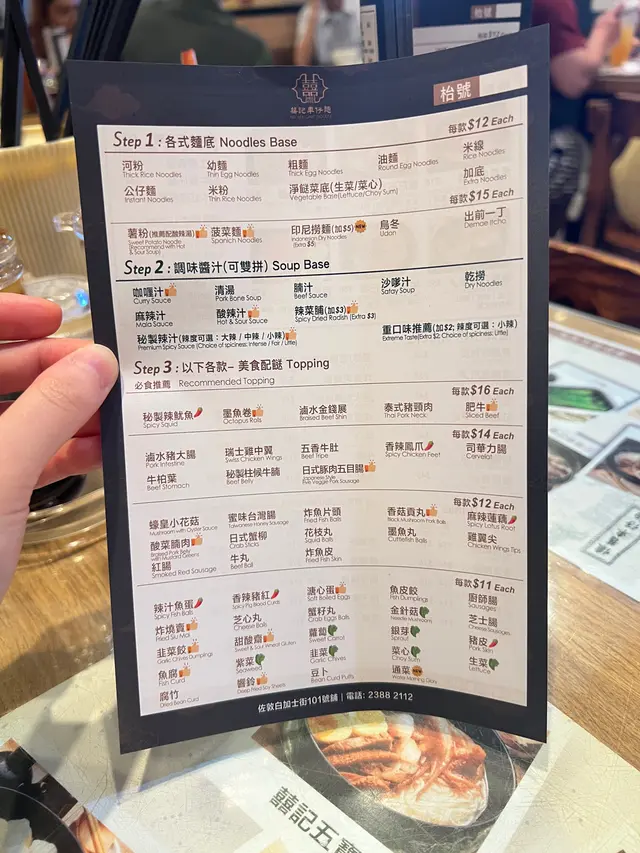 囍記車仔麵
枱號
Step 1 : 各式麵底 Noodles Base
每款$12 Each
河粉 幼麵 粗麵 油麵 米線
Thick Rice Noodles Thin Egg Noodles Thick Egg Noodles Round Egg Noodles Rice Noodles
公仔麵 米粉 淨餸菜底(生菜/菜心) 加底
Instant Noodles Thin Rice Noodles Vegetable Base(Lettuce/Choy Sum) Extra Noodles
每款$15 Each
薯粉(推薦配酸辣湯) 菠菜麵 印尼撈麵(加$5) NEW 烏冬 出前一丁
Sweet Potato Noodle Spanich Noodles Indonesian Dry Noodles Udon Demae Itcho
(Recommend with Hot & Sour Soup) (Extra $5)
Step 2 : 調味醬汁(可雙拼) Soup Base
咖喱汁 清湯 腩汁 沙嗲汁 乾撈
Curry Sauce Pork Bone Soup Beef Sauce Satay Soup Dry Noodles
麻辣汁 酸辣汁 辣菜脯(加$3)
Mala Sauce Hot & Sour Sauce Spicy Dried Radish (Extra $3)
秘製辣汁(辣度可選：大辣 / 中辣 / 小辣) 重口味推薦(加$2; 辣度可選：小辣)
Premium Spicy Sauce (Choice of spiciness: Intense / Fair / Little) Extreme Taste(Extra $2; Choice of spiciness: Little)
Step 3 : 以下各款– 美食配餸 Topping
必食推薦 Recommended Topping
每款$16 Each
秘製辣魷魚 墨魚卷 滷水金錢展 泰式豬頸肉 肥牛
Spicy Squid Octopus Rolls Braised Beef Shin Thai Pork Neck Sliced Beef
每款$14 Each
滷水豬大腸 瑞士雞中翼 五香牛肚 香辣鳳爪 司華力腸
Pork Intestine Swiss Chicken Wings Beef Tripe Spicy Chicken Feet Cervelat
牛柏葉 秘製柱候牛腩 日式豚肉五目腸
Beef Stomach Beef Belly Japanese Style Bits Veggie Pork Sausage
每款$12 Each
蠔皇小花菇 蜜味台灣腸 炸魚片頭 香菇貢丸 麻辣蓮藕
Mushroom with Oyster Sauce Taiwanese Honey Sausage Fried Fish Balls Black Mushroom Pork Balls Spicy Lotus Root
酸菜腩肉 日式蟹柳 花枝丸 墨魚丸 雞翼尖
Braised Pork Belly with Mustard Greens Crab Sticks Squid Balls Cuttlefish Balls Chicken Wings Tips
紅腸 牛丸 炸魚皮
Smoked Red Sausage Beef Ball Fried Fish Skin
每款$11 Each
辣汁魚蛋 香辣豬紅 溏心蛋 魚皮餃 廚師腸
Spicy Fish Balls Spicy Pig Blood Curds Soft Boiled Eggs Fish Dumplings Sausages
炸燒賣 芝心丸 蟹籽丸 金針菇 芝士腸
Fried Siu Mai Cheese Balls Crab Eggs Balls Needle Mushrooms Cheese Sausages
韭菜餃 甜酸齋 蘿蔔 銀芽 豬皮
Garlic Chives Dumplings Sweet & Sour Wheat Gluten Sweet Carrot Sprout Pork Skin
魚腐 紫菜 韭菜 菜心 生菜
Fish Curd Seaweed Garlic Chives Choy Sum Lettuce
腐竹 響鈴 豆卜 通菜 NEW
Dried Bean Curd Deep Fried Soy Sheets Bean Curd Puffs Water Morning Glory
佐敦白加士街101號舖 | 電話: 2388 2112
囍記五寶